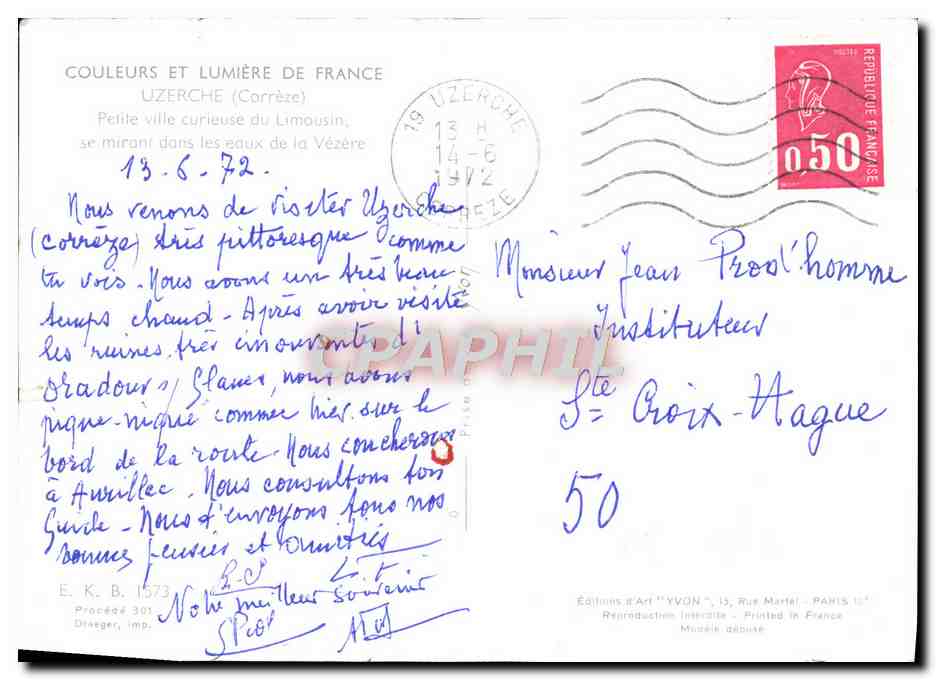 COULEURS ET LUMIÈRE DE FRANCE
UZERCHE (Corrèze)
Petite ville curieuse du Limousin,
se mirant dans les eaux de la Vézère
13.6.72.
Nous venons de visiter Uzerche
(corrèze) très pittoresque comme
tu vois. Nous avons un très beau
temps chaud - Après avoir visité
les ruines très émouvantes d'
Oradour s/ Glanes, nous avons
pique-niqué comme hier sur le
bord de la route. Nous coucherons
à Aurillac. Nous consultons ton
Guide - Nous t'envoyons tous nos
bonnes pensées et amitiés
Notre meilleur souvenir
E. K. B. 1573
Procédé 301
Draeger, imp.
19 UZERCHE
13 H
14-6
1972
CORREZE
POSTES
REPUBLIQUE FRANÇAISE
0,50
Monsieur Jean Prod'homme
Instituteur
Ste Croix-Hague
50
CPAPHIL
Editions d'Art "YVON", 15, Rue Martel - PARIS 10e
Reproduction Interdite - Printed in France
Modèle déposé